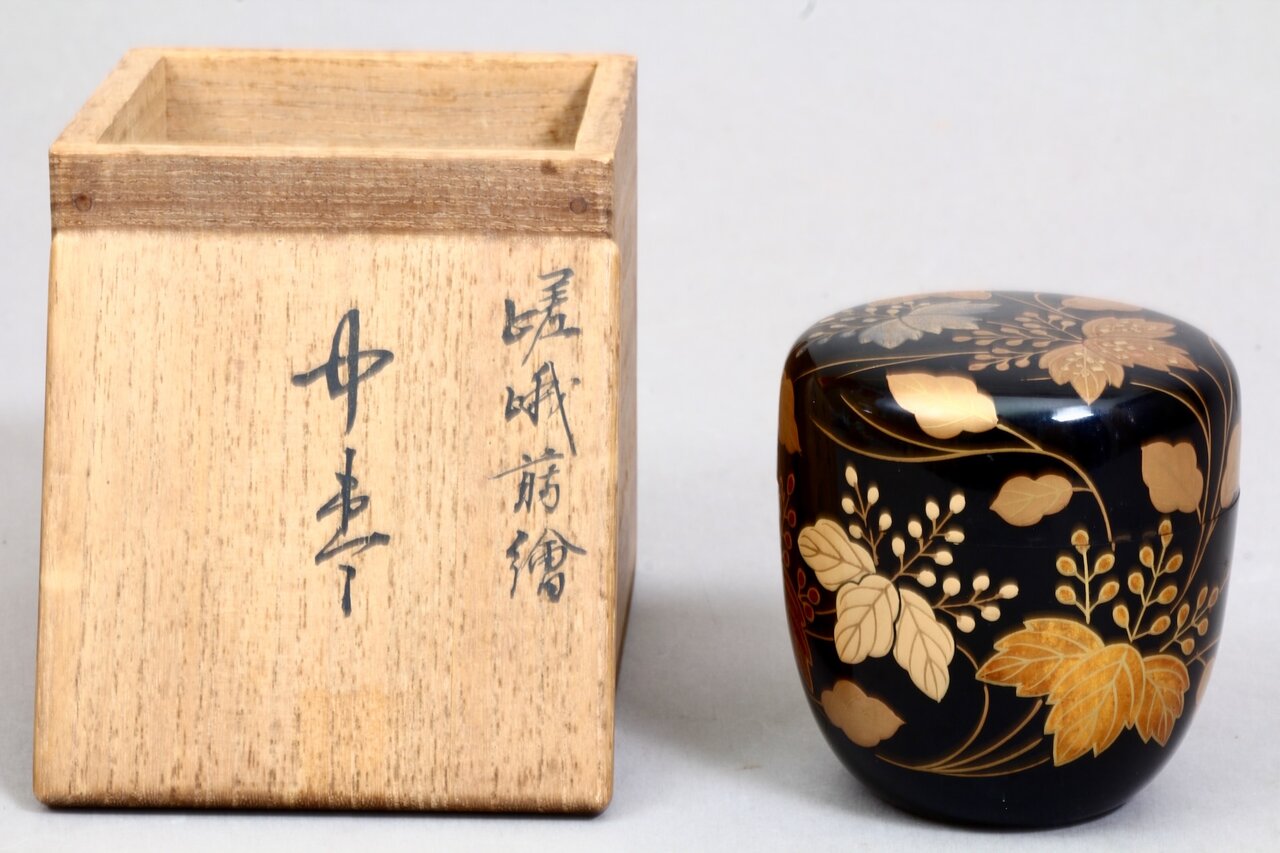 嵯峨蒔繪
中棗